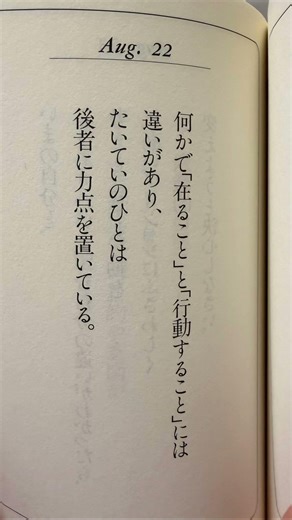 Aug. 22
何かで「在ること」と「行動すること」には
違いがあり、
たいていのひとは
後者に力点を置いている。